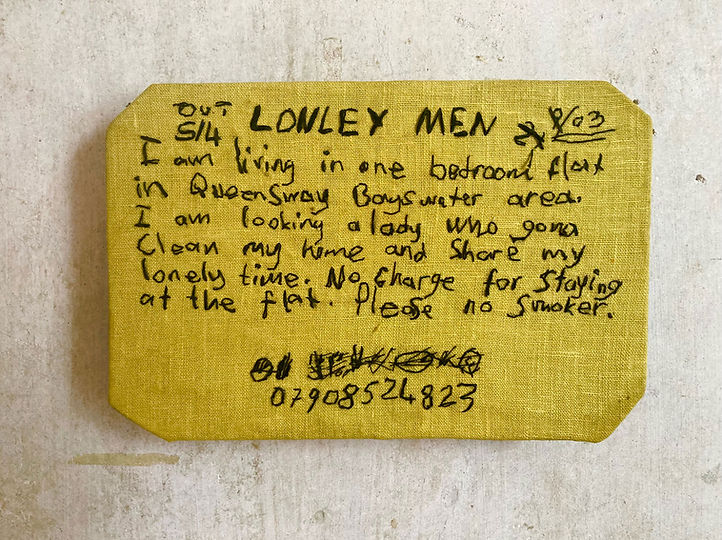 OUT
5/4 LONLEY MEN 8/03
I am living in one bedroom flat
in Queensway Bayswater area.
I am looking a lady who gona
Clean my home and Share my
lonely time. No Charge for staying
at the flat. Please no smoker.
07908524823